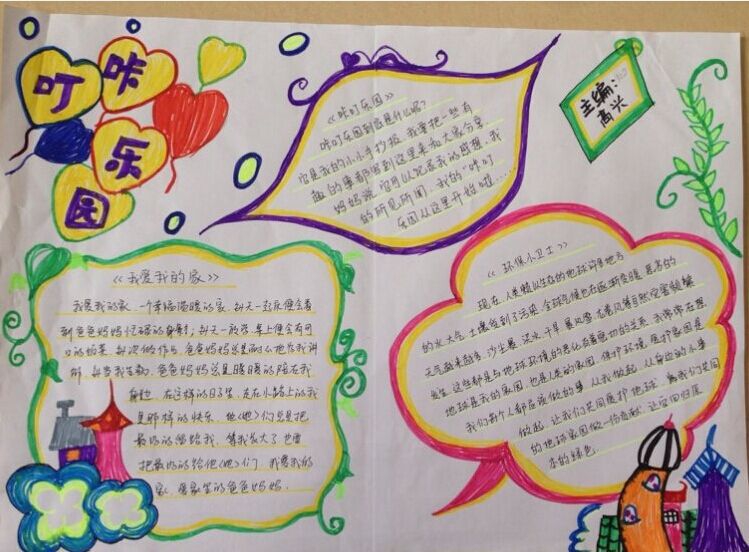 咔叮乐园
主编:
高兴
《咔叮乐园》
咔叮乐园到底是什么呢?
它是我的小小手抄报,我要把一些有
趣的事都写到这里来和大家分享
妈妈说,它可以记录我的感想,我
的所见所闻,我的“咔叮
乐园”从这里开始啦……
《我爱我的家》
我爱我的家,一个幸福温暖的家,每天一起床便会看
到爸爸妈妈忙碌的身影;每天一放学,桌上便会有可
口的饭菜,每次做作业,爸爸妈妈总是耐心地给我讲
解,每当我生病,爸爸妈妈总是暖暖的陪在我
身边,在这样的日子里,走在小路上的我
是那样的快乐,他(她)们总是把
最好的留给我,等我长大了也要
把最好的给他(她)们,我爱我的
家,爱家里的爸爸妈妈.
《环保小卫士》
现在,人类赖以生存的地球许多地方
的水、大气、土壤受到了污染,全球气候也在逐渐变暖,恶劣的
天气越来越多,沙尘暴、洪水、干旱、暴风雪、龙卷风等自然灾害频繁
发生,这些都是与地球环境的恶化有着密切的关系,我常常在想,
地球是我的家园,也是人类的家园,保护环境,爱护家园是
我们每个人都应该做的事,从我做起,从身边的小事
做起,让我们共同爱护地球,为我们共同
的地球家园做一份贡献,让它回归原
本的绿色.